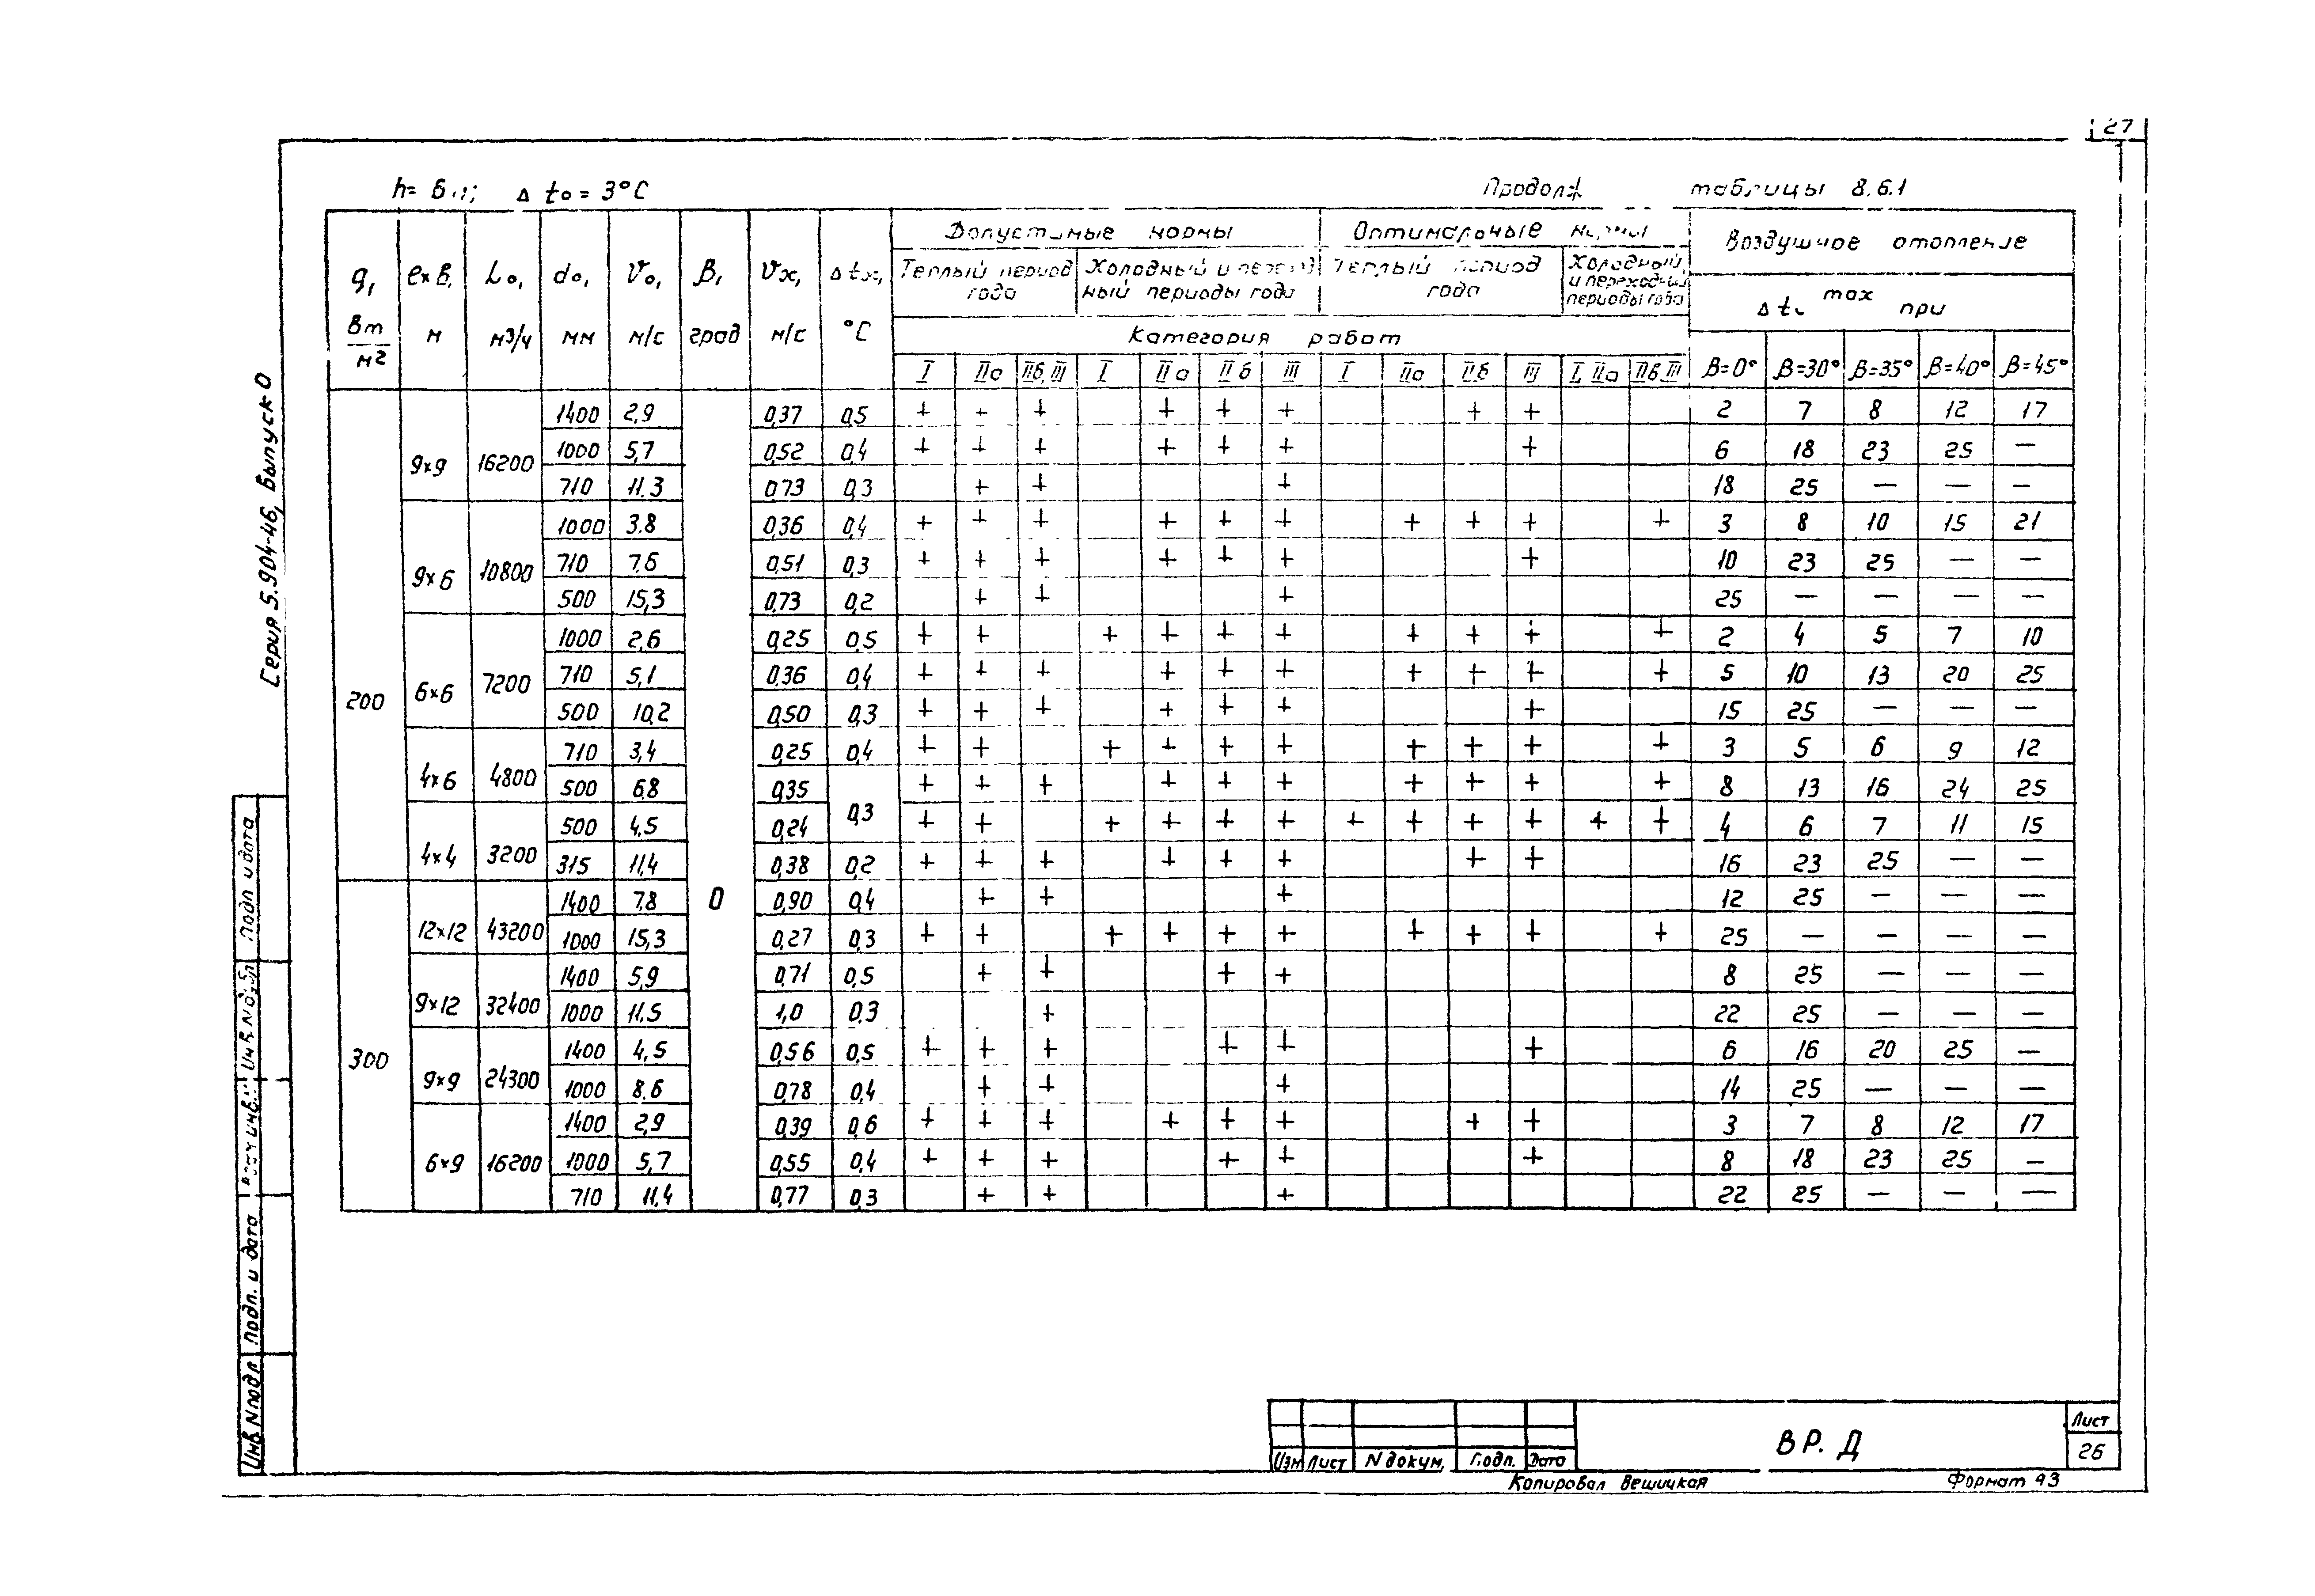 27
h= 6 м; Δ to = 3°C
Продолж таблицы 8.6.1
q, Вт/м² | ехв, м | Lo, м3/ч | do, мм | Vo, м/с | β, град | Vx, м/с | Δ tx, °C | Допустимые нормы | Оптимальные нормы | Воздушное отопление
Теплый период года | Холодный и переходный периоды года | Теплый период года | Холодный и переходный периоды года | Δ to max при
Категория работ
I | IIa | IIб, III | I | IIa | IIб | III | I | IIa | IIб | III | I, IIa | IIб III | β=0° | β=30° | β=35° | β=40° | β=45°
200 | 9×9 | 16200 | 1400 | 2,9 | 0 | 0,37 | 0,5 | + | + | + | | + | + | + | | | + | + | | | 2 | 7 | 8 | 12 | 17
1000 | 5,7 | 0,52 | 0,4 | + | + | + | | + | + | + | | | | + | | | 6 | 18 | 23 | 25 | —
710 | 11.3 | 0,73 | 0,3 | | + | + | | | | + | | | | | | | 18 | 25 | — | — | —
9×6 | 10800 | 1000 | 3.8 | 0,36 | 0,4 | + | + | + | | + | + | + | | + | + | + | | + | 3 | 8 | 10 | 15 | 21
710 | 7,6 | 0,51 | 0,3 | + | + | + | | + | + | + | | | | + | | | 10 | 23 | 25 | — | —
500 | 15,3 | 0,73 | 0,2 | | + | + | | | | + | | | | | | | 25 | — | — | — | —
6×6 | 7200 | 1000 | 2,6 | 0,25 | 0,5 | + | + | | + | + | + | + | | + | + | + | | + | 2 | 4 | 5 | 7 | 10
710 | 5,1 | 0,36 | 0,4 | + | + | + | | + | + | + | | + | + | + | | + | 5 | 10 | 13 | 20 | 25
500 | 10,2 | 0,50 | 0,3 | + | + | + | | + | + | + | | | | + | | | 15 | 25 | — | — | —
4×6 | 4800 | 710 | 3,4 | 0,25 | 0,4 | + | + | | + | + | + | + | | + | + | + | | + | 3 | 5 | 6 | 9 | 12
500 | 6,8 | 0,35 | 0,3 | + | + | + | | + | + | + | | + | + | + | | + | 8 | 13 | 16 | 24 | 25
4×4 | 3200 | 500 | 4,5 | 0,24 | + | + | | + | + | + | + | + | + | + | + | + | + | 4 | 6 | 7 | 11 | 15
315 | 11,4 | 0,38 | 0,2 | + | + | + | | + | + | + | | | + | + | | | 16 | 23 | 25 | — | —
300 | 12×12 | 43200 | 1400 | 7,8 | 0,90 | 0,4 | | + | + | | | | + | | | | | | | 12 | 25 | — | — | —
1000 | 15,3 | 0,27 | 0,3 | + | + | | + | + | + | + | | + | + | + | | + | 25 | — | — | — | —
9×12 | 32400 | 1400 | 5,9 | 0,71 | 0,5 | | + | + | | | + | + | | | | | | | 8 | 25 | — | — | —
1000 | 11.5 | 1,0 | 0,3 | | | + | | | | | | | | | | | 22 | 25 | — | — | —
9×9 | 24300 | 1400 | 4,5 | 0,56 | 0,5 | + | + | + | | | + | + | | | | + | | | 6 | 16 | 20 | 25 | —
1000 | 8.6 | 0,78 | 0,4 | | + | + | | | | + | | | | | | | 14 | 25 | — | — | —
6×9 | 16200 | 1400 | 2,9 | 0,39 | 0,6 | + | + | + | | + | + | + | | | + | + | | | 3 | 7 | 8 | 12 | 17
1000 | 5,7 | 0,55 | 0,4 | + | + | + | | | + | + | | | | + | | | 8 | 18 | 23 | 25 | —
710 | 11,4 | 0,77 | 0,3 | | + | + | | | | + | | | | | | | 22 | 25 | — | — | —
Серия 5.904-46, Выпуск 0
Подп и дата
Инв. №
Подп. и дата
Инв № подл
Изм Лист N докум. Подп. Дата
ВР. Д
Лист
26
Копировал Вешицкая
Формат А3